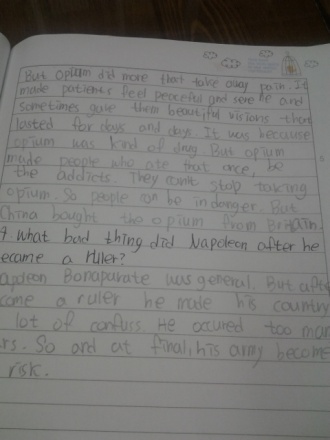 But opium did more that take away pain. It
made patients feel peaceful and serene and
sometimes gave them beautiful visions that
lasted for days and days. It was because
opium was kind of drug. But opium
made people who ate that once, be
the addicts. They can't stop taking
opium. So people can be in danger. But
China bought the opium from Britain.
what bad thing did Napoleon after he
ecame a ruler?
apoleon Bonaparate was general. But afte
come a ruler he made his country
lot of confuss. He occured too man
rs. So and at final, his army become
risk.